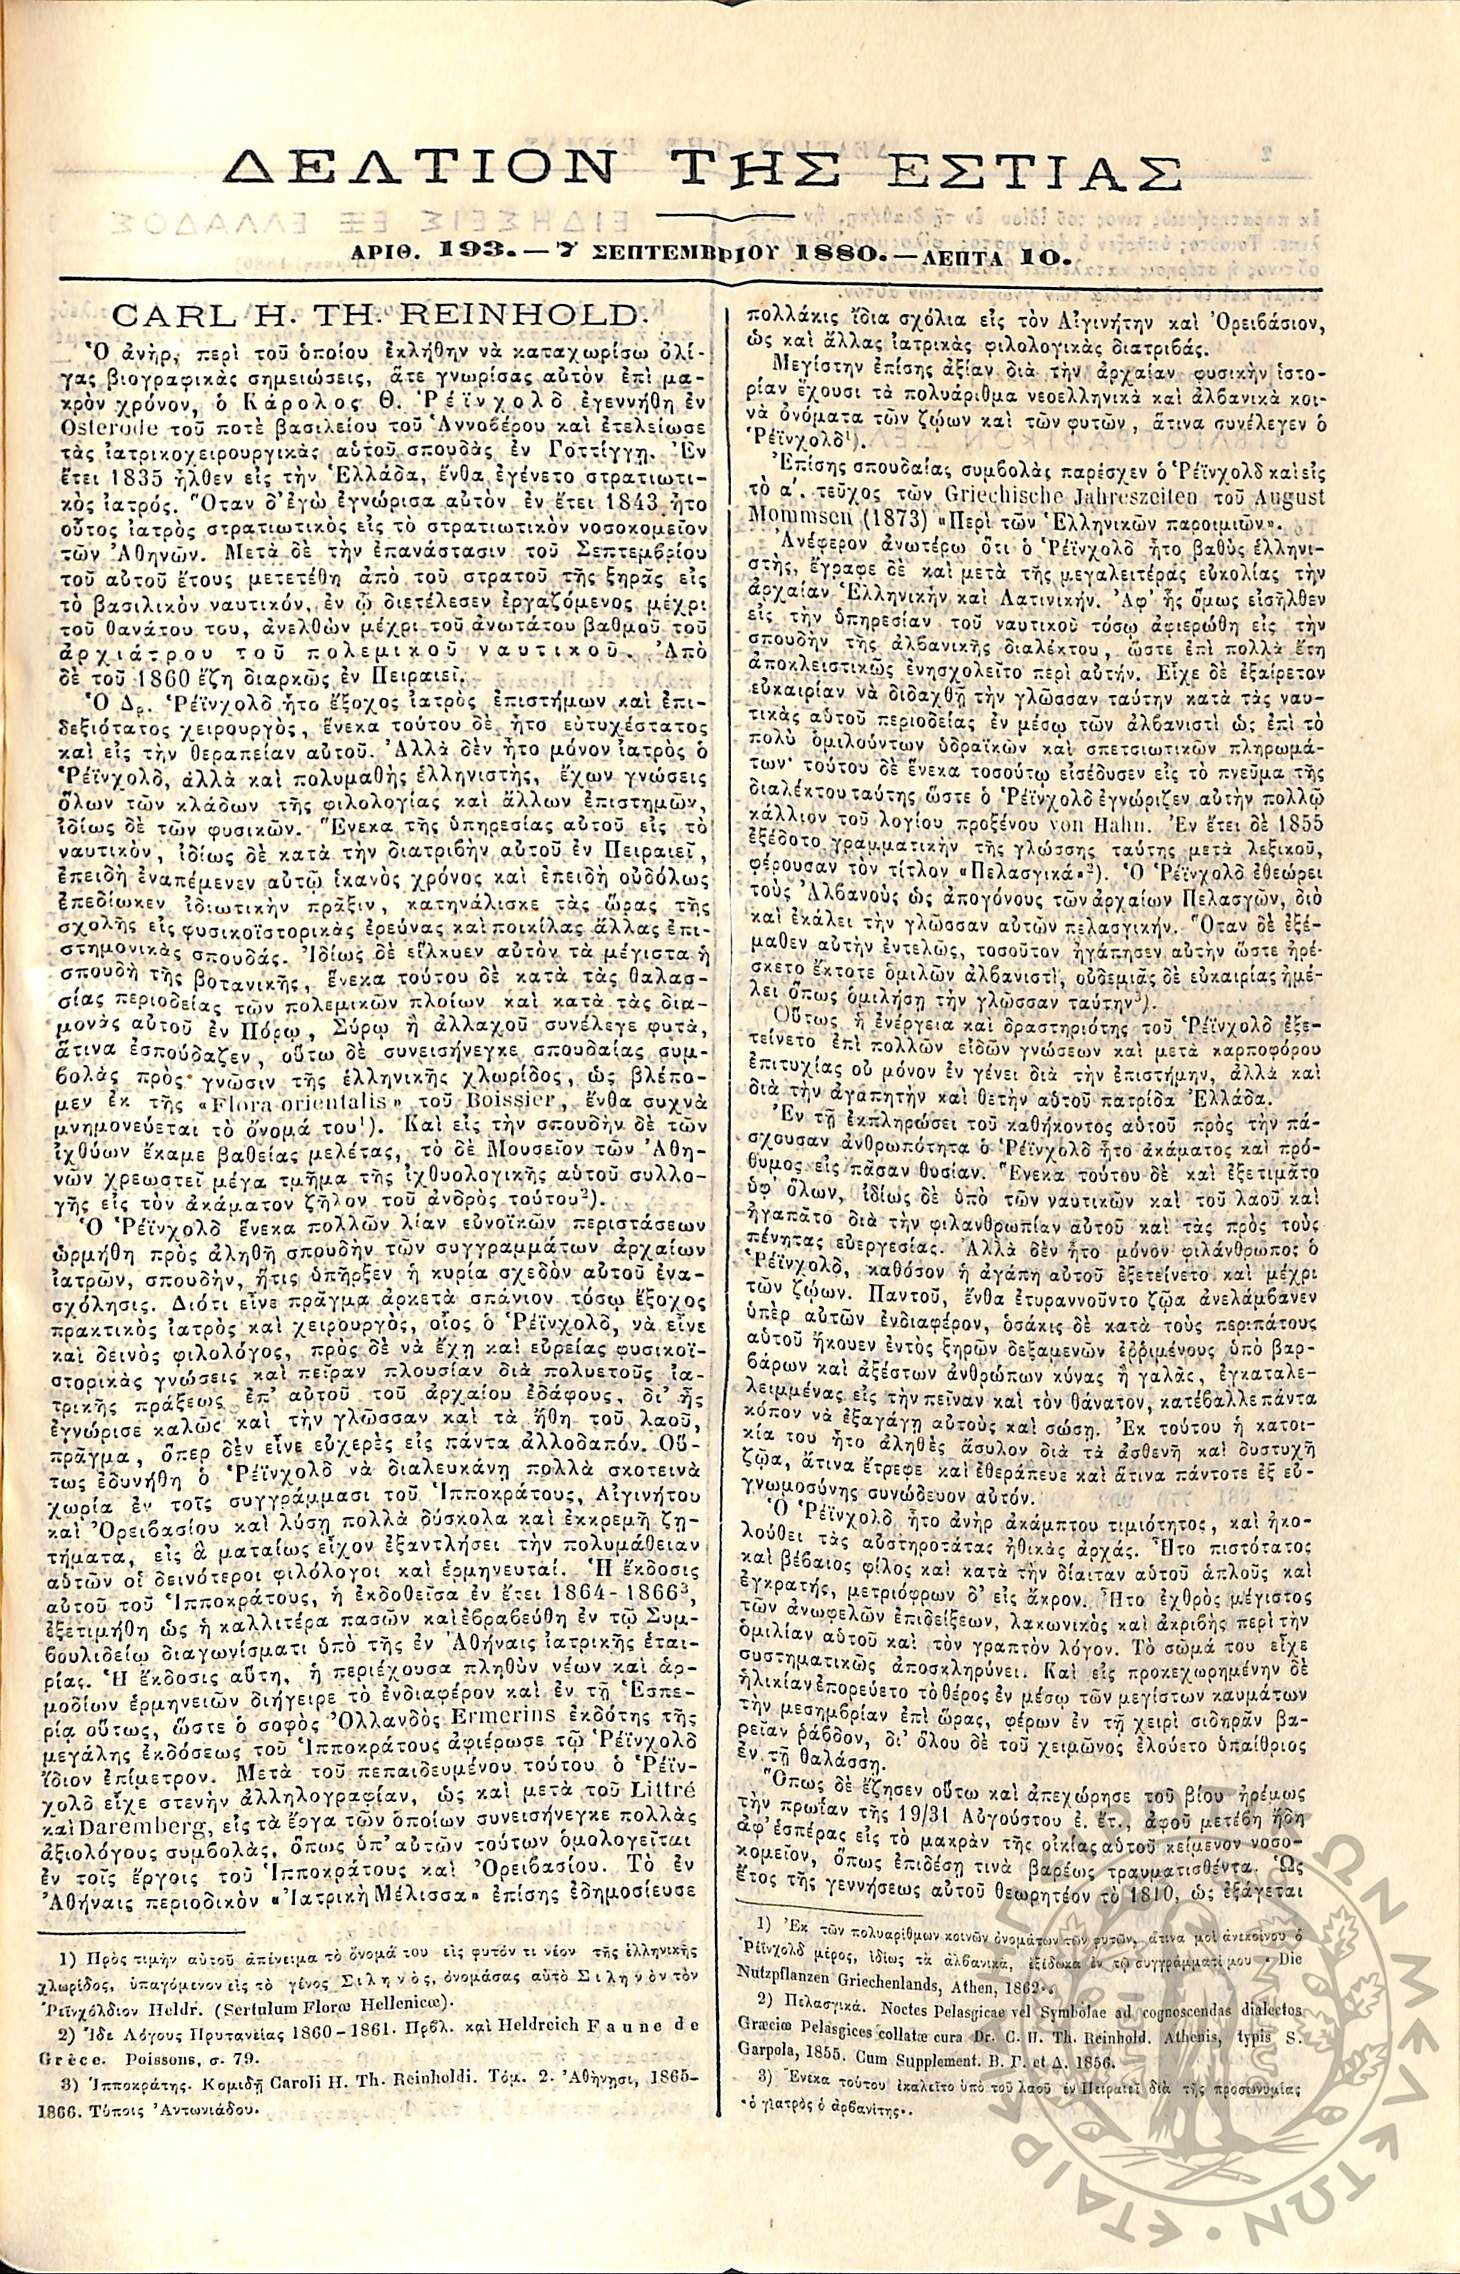 ΔΕΛΤΙΟΝ ΤΗΣ ΕΣΤΙΑΣ
ΑΡΙΘ. 193.—7 ΣΕΠΤΕΜΒΡΙΟΥ 1880.—ΛΕΠΤΑ 10.
CARL H. TH. REINHOLD.
Ὁ ἀνὴρ, περὶ τοῦ ὁποίου ἐκλήθην νὰ καταχωρίσω ὀλί-
γας βιογραφικὰς σημειώσεις, ἅτε γνωρίσας αὐτὸν ἐπὶ μα-
κρὸν χρόνον, ὁ Κάρολος Θ. Ῥέϊνχολδ ἐγεννήθη ἐν
Osterode τοῦ ποτὲ βασιλείου τοῦ Ἀννοβέρου καὶ ἐτελείωσε
τὰς ἰατρικοχειρουργικὰς αὑτοῦ σπουδὰς ἐν Γοττίγγῃ. Ἐν
ἔτει 1835 ἦλθεν εἰς τὴν Ἑλλάδα, ἔνθα ἐγένετο στρατιωτι-
κὸς ἰατρός. Ὅταν δ' ἐγὼ ἐγνώρισα αὐτὸν ἐν ἔτει 1843 ἦτο
οὗτος ἰατρὸς στρατιωτικὸς εἰς τὸ στρατιωτικὸν νοσοκομεῖον
τῶν Ἀθηνῶν. Μετὰ δὲ τὴν ἐπανάστασιν τοῦ Σεπτεμβρίου
τοῦ αὐτοῦ ἔτους μετετέθη ἀπὸ τοῦ στρατοῦ τῆς ξηρᾶς εἰς
τὸ βασιλικὸν ναυτικόν, ἐν ᾧ διετέλεσεν ἐργαζόμενος μέχρι
τοῦ θανάτου του, ἀνελθὼν μέχρι τοῦ ἀνωτάτου βαθμοῦ τοῦ
ἀρχιάτρου τοῦ πολεμικοῦ ναυτικοῦ. Ἀπὸ
δὲ τοῦ 1860 ἔζη διαρκῶς ἐν Πειραιεῖ.
Ὁ Δρ. Ῥέϊνχολδ ἦτο ἔξοχος ἰατρὸς ἐπιστήμων καὶ ἐπι-
δεξιότατος χειρουργὸς, ἕνεκα τούτου δὲ ἦτο εὐτυχέστατος
καὶ εἰς τὴν θεραπείαν αὑτοῦ. Ἀλλὰ δὲν ἦτο μόνον ἰατρὸς ὁ
Ῥέϊνχολδ, ἀλλὰ καὶ πολυμαθὴς ἑλληνιστὴς, ἔχων γνώσεις
ὅλων τῶν κλάδων τῆς φιλολογίας καὶ ἄλλων ἐπιστημῶν,
ἰδίως δὲ τῶν φυσικῶν. Ἕνεκα τῆς ὑπηρεσίας αὑτοῦ εἰς τὸ
ναυτικὸν, ἰδίως δὲ κατὰ τὴν διατριβὴν αὑτοῦ ἐν Πειραιεῖ,
ἐπειδὴ ἐναπέμενεν αὐτῷ ἱκανὸς χρόνος καὶ ἐπειδὴ οὐδόλως
ἐπεδίωκεν ἰδιωτικὴν πρᾶξιν, κατηνάλισκε τὰς ὥρας τῆς
σχολῆς εἰς φυσικοϊστορικὰς ἐρεύνας καὶ ποικίλας ἄλλας ἐπι-
στημονικὰς σπουδάς. Ἰδίως δὲ εἵλκυεν αὐτὸν τὰ μέγιστα ἡ
σπουδὴ τῆς βοτανικῆς, ἕνεκα τούτου δὲ κατὰ τὰς θαλασ-
σίας περιοδείας τῶν πολεμικῶν πλοίων καὶ κατὰ τὰς δια-
μονὰς αὑτοῦ ἐν Πόρῳ, Σύρῳ ἢ ἀλλαχοῦ συνέλεγε φυτὰ,
ἅτινα ἐσπούδαζεν, οὕτω δὲ συνεισήνεγκε σπουδαίας συμ-
βολὰς πρὸς γνῶσιν τῆς ἑλληνικῆς χλωρίδος, ὡς βλέπο-
μεν ἐκ τῆς «Flora orientalis» τοῦ Boissier, ἔνθα συχνὰ
μνημονεύεται τὸ ὄνομά του¹). Καὶ εἰς τὴν σπουδὴν δὲ τῶν
ἰχθύων ἔκαμε βαθείας μελέτας, τὸ δὲ Μουσεῖον τῶν Ἀθη-
νῶν χρεωστεῖ μέγα τμῆμα τῆς ἰχθυολογικῆς αὑτοῦ συλλο-
γῆς εἰς τὸν ἀκάματον ζῆλον τοῦ ἀνδρὸς τούτου²).
Ὁ Ῥέϊνχολδ ἕνεκα πολλῶν λίαν εὐνοϊκῶν περιστάσεων
ὡρμήθη πρὸς ἀληθῆ σπουδὴν τῶν συγγραμμάτων ἀρχαίων
ἰατρῶν, σπουδὴν, ἥτις ὑπῆρξεν ἡ κυρία σχεδὸν αὑτοῦ ἐνα-
σχόλησις. Διότι εἶνε πρᾶγμα ἀρκετὰ σπάνιον τόσῳ ἔξοχος
πρακτικὸς ἰατρὸς καὶ χειρουργὸς, οἷος ὁ Ῥέϊνχολδ, νὰ εἶνε
καὶ δεινὸς φιλολόγος, πρὸς δὲ νὰ ἔχῃ καὶ εὐρείας φυσικοϊ-
στορικὰς γνώσεις καὶ πεῖραν πλουσίαν διὰ πολυετοῦς ἰα-
τρικῆς πράξεως ἐπ' αὐτοῦ τοῦ ἀρχαίου ἐδάφους, δι' ἧς
ἐγνώρισε καλῶς καὶ τὴν γλῶσσαν καὶ τὰ ἤθη τοῦ λαοῦ,
πρᾶγμα, ὅπερ δὲν εἶνε εὐχερὲς εἰς πάντα ἀλλοδαπόν. Οὕ-
τως ἐδυνήθη ὁ Ῥέϊνχολδ νὰ διαλευκάνῃ πολλὰ σκοτεινὰ
χωρία ἐν τοῖς συγγράμμασι τοῦ Ἱπποκράτους, Αἰγινήτου
καὶ Ὀρειβασίου καὶ λύσῃ πολλὰ δύσκολα καὶ ἐκκρεμῆ ζη-
τήματα, εἰς ἃ ματαίως εἶχον ἐξαντλήσει τὴν πολυμάθειαν
αὑτῶν οἱ δεινότεροι φιλόλογοι καὶ ἑρμηνευταί. Ἡ ἔκδοσις
αὑτοῦ τοῦ Ἱπποκράτους, ἡ ἐκδοθεῖσα ἐν ἔτει 1864-1866³,
ἐξετιμήθη ὡς ἡ καλλιτέρα πασῶν καὶ ἐβραβεύθη ἐν τῷ Συμ-
βουλιδείῳ διαγωνίσματι ὑπὸ τῆς ἐν Ἀθήναις ἰατρικῆς ἑται-
ρίας. Ἡ ἔκδοσις αὕτη, ἡ περιέχουσα πληθὺν νέων καὶ ἁρ-
μοδίων ἑρμηνειῶν διήγειρε τὸ ἐνδιαφέρον καὶ ἐν τῇ Ἑσπε-
ρίᾳ οὕτως, ὥστε ὁ σοφὸς Ὁλλανδὸς Ermerins ἐκδότης τῆς
μεγάλης ἐκδόσεως τοῦ Ἱπποκράτους ἀφιέρωσε τῷ Ῥέϊνχολδ
ἴδιον ἐπίμετρον. Μετὰ τοῦ πεπαιδευμένου τούτου ὁ Ῥέϊν-
χολδ εἶχε στενὴν ἀλληλογραφίαν, ὡς καὶ μετὰ τοῦ Littré
καὶ Daremberg, εἰς τὰ ἔργα τῶν ὁποίων συνεισήνεγκε πολλὰς
ἀξιολόγους συμβολὰς, ὅπως ὑπ' αὐτῶν τούτων ὁμολογεῖται
ἐν τοῖς ἔργοις τοῦ Ἱπποκράτους καὶ Ὀρειβασίου. Τὸ ἐν
Ἀθήναις περιοδικὸν «Ἰατρικὴ Μέλισσα» ἐπίσης ἐδημοσίευσε
1) Πρὸς τιμὴν αὐτοῦ ἀπένειμα τὸ ὄνομά του εἰς φυτόν τι νέον τῆς ἑλληνικῆς
χλωρίδος, ὑπαγόμενον εἰς τὸ γένος Σιληνὸς, ὀνομάσας αὐτὸ Σιληνὸν τὸν
Ῥεϊνχόλδιον Heldr. (Sertulum Floræ Hellenicæ).
2) Ἴδε Λόγους Πρυτανείας 1860-1861. Πρβλ. καὶ Heldreich Faune de
Grèce. Poissons, σ. 79.
3) Ἱπποκράτης. Κομιδῇ Caroli H. Th. Reinholdi. Τόμ. 2. Ἀθήνησι, 1865-
1866. Τύποις Ἀντωνιάδου.
πολλάκις ἴδια σχόλια εἰς τὸν Αἰγινήτην καὶ Ὀρειβάσιον,
ὡς καὶ ἄλλας ἰατρικὰς φιλολογικὰς διατριβάς.
Μεγίστην ἐπίσης ἀξίαν διὰ τὴν ἀρχαίαν φυσικὴν ἱστο-
ρίαν ἔχουσι τὰ πολυάριθμα νεοελληνικὰ καὶ ἀλβανικὰ κοι-
νὰ ὀνόματα τῶν ζῴων καὶ τῶν φυτῶν, ἅτινα συνέλεγεν ὁ
Ῥέϊνχολδ¹).
Ἐπίσης σπουδαίας συμβολὰς παρέσχεν ὁ Ῥέϊνχολδ καὶ εἰς
τὸ α΄. τεῦχος τῶν Griechische Jahreszeiten τοῦ August
Mommsen (1873) «Περὶ τῶν Ἑλληνικῶν παροιμιῶν».
Ἀνέφερον ἀνωτέρω ὅτι ὁ Ῥέϊνχολδ ἦτο βαθὺς ἑλληνι-
στὴς, ἔγραφε δὲ καὶ μετὰ τῆς μεγαλειτέρας εὐκολίας τὴν
ἀρχαίαν Ἑλληνικὴν καὶ Λατινικήν. Ἀφ' ἧς ὅμως εἰσῆλθεν
εἰς τὴν ὑπηρεσίαν τοῦ ναυτικοῦ τόσῳ ἀφιερώθη εἰς τὴν
σπουδὴν τῆς ἀλβανικῆς διαλέκτου, ὥστε ἐπὶ πολλὰ ἔτη
ἀποκλειστικῶς ἐνησχολεῖτο περὶ αὐτήν. Εἶχε δὲ ἐξαίρετον
εὐκαιρίαν νὰ διδαχθῇ τὴν γλῶσσαν ταύτην κατὰ τὰς ναυ-
τικὰς αὑτοῦ περιοδείας ἐν μέσῳ τῶν ἀλβανιστὶ ὡς ἐπὶ τὸ
πολὺ ὁμιλούντων ὑδραϊκῶν καὶ σπετσιωτικῶν πληρωμά-
των· τούτου δὲ ἕνεκα τοσούτῳ εἰσέδυσεν εἰς τὸ πνεῦμα τῆς
διαλέκτου ταύτης ὥστε ὁ Ῥέϊνχολδ ἐγνώριζεν αὐτὴν πολλῷ
κάλλιον τοῦ λογίου προξένου von Hahn. Ἐν ἔτει δὲ 1855
ἐξέδοτο γραμματικὴν τῆς γλώσσης ταύτης μετὰ λεξικοῦ,
φέρουσαν τὸν τίτλον «Πελασγικά»²). Ὁ Ῥέϊνχολδ ἐθεώρει
τοὺς Ἀλβανοὺς ὡς ἀπογόνους τῶν ἀρχαίων Πελασγῶν, διὸ
καὶ ἐκάλει τὴν γλῶσσαν αὐτῶν πελασγικήν. Ὅταν δὲ ἐξέ-
μαθεν αὐτὴν ἐντελῶς, τοσοῦτον ἠγάπησεν αὐτὴν ὥστε ἠρέ-
σκετο ἔκτοτε ὁμιλῶν ἀλβανιστὶ, οὐδεμιᾶς δὲ εὐκαιρίας ἠμέ-
λει ὅπως ὁμιλήσῃ τὴν γλῶσσαν ταύτην³).
Οὕτως ἡ ἐνέργεια καὶ δραστηριότης τοῦ Ῥέϊνχολδ ἐξε-
τείνετο ἐπὶ πολλῶν εἰδῶν γνώσεων καὶ μετὰ καρποφόρου
ἐπιτυχίας οὐ μόνον ἐν γένει διὰ τὴν ἐπιστήμην, ἀλλὰ καὶ
διὰ τὴν ἀγαπητὴν καὶ θετὴν αὑτοῦ πατρίδα Ἑλλάδα.
Ἐν τῇ ἐκπληρώσει τοῦ καθήκοντος αὑτοῦ πρὸς τὴν πά-
σχουσαν ἀνθρωπότητα ὁ Ῥέϊνχολδ ἦτο ἀκάματος καὶ πρό-
θυμος εἰς πᾶσαν θυσίαν. Ἕνεκα τούτου δὲ καὶ ἐξετιμᾶτο
ὑφ' ὅλων, ἰδίως δὲ ὑπὸ τῶν ναυτικῶν καὶ τοῦ λαοῦ καὶ
ἠγαπᾶτο διὰ τὴν φιλανθρωπίαν αὑτοῦ καὶ τὰς πρὸς τοὺς
πένητας εὐεργεσίας. Ἀλλὰ δὲν ἦτο μόνον φιλάνθρωπος ὁ
Ῥέϊνχολδ, καθόσον ἡ ἀγάπη αὑτοῦ ἐξετείνετο καὶ μέχρι
τῶν ζῴων. Παντοῦ, ἔνθα ἐτυραννοῦντο ζῷα ἀνελάμβανεν
ὑπὲρ αὐτῶν ἐνδιαφέρον, ὁσάκις δὲ κατὰ τοὺς περιπάτους
αὑτοῦ ἤκουεν ἐντὸς ξηρῶν δεξαμενῶν ἐῤῥιμένους ὑπὸ βαρ-
βάρων καὶ ἀξέστων ἀνθρώπων κύνας ἢ γαλᾶς, ἐγκαταλε-
λειμμένας εἰς τὴν πεῖναν καὶ τὸν θάνατον, κατέβαλλε πάντα
κόπον νὰ ἐξαγάγῃ αὐτοὺς καὶ σώσῃ. Ἐκ τούτου ἡ κατοι-
κία του ἦτο ἀληθὲς ἄσυλον διὰ τὰ ἀσθενῆ καὶ δυστυχῆ
ζῷα, ἅτινα ἔτρεφε καὶ ἐθεράπευε καὶ ἅτινα πάντοτε ἐξ εὐ-
γνωμοσύνης συνώδευον αὐτόν.
Ὁ Ῥέϊνχολδ ἦτο ἀνὴρ ἀκάμπτου τιμιότητος, καὶ ἠκο-
λούθει τὰς αὐστηροτάτας ἠθικὰς ἀρχάς. Ἦτο πιστότατος
καὶ βέβαιος φίλος καὶ κατὰ τὴν δίαιταν αὑτοῦ ἁπλοῦς καὶ
ἐγκρατὴς, μετριόφρων δ' εἰς ἄκρον. Ἦτο ἐχθρὸς μέγιστος
τῶν ἀνωφελῶν ἐπιδείξεων, λακωνικὸς καὶ ἀκριβὴς περὶ τὴν
ὁμιλίαν αὑτοῦ καὶ τὸν γραπτὸν λόγον. Τὸ σῶμά του εἶχε
συστηματικῶς ἀποσκληρύνει. Καὶ εἰς προκεχωρημένην δὲ
ἡλικίαν ἐπορεύετο τὸ θέρος ἐν μέσῳ τῶν μεγίστων καυμάτων
τὴν μεσημβρίαν ἐπὶ ὥρας, φέρων ἐν τῇ χειρὶ σιδηρᾶν βα-
ρεῖαν ῥάβδον, δι' ὅλου δὲ τοῦ χειμῶνος ἐλούετο ὑπαίθριος
ἐν τῇ θαλάσσῃ.
Ὅπως δὲ ἔζησεν οὕτω καὶ ἀπεχώρησε τοῦ βίου ἠρέμως
τὴν πρωΐαν τῆς 19/31 Αὐγούστου ἐ. ἔτ., ἀφοῦ μετέβη ἤδη
ἀφ' ἑσπέρας εἰς τὸ μακρὰν τῆς οἰκίας αὑτοῦ κείμενον νοσο-
κομεῖον, ὅπως ἐπιδέσῃ τινὰ βαρέως τραυματισθέντα. Ὡς
ἔτος τῆς γεννήσεως αὐτοῦ θεωρητέον τὸ 1810, ὡς ἐξάγεται
1) Ἐκ τῶν πολυαρίθμων κοινῶν ὀνομάτων τῶν φυτῶν, ἅτινα μοὶ ἀνεκοίνου ὁ
Ῥέϊνχολδ μέρος, ἰδίως τὰ ἀλβανικὰ, ἐξέδωκα ἐν τῷ συγγράμματί μου «Die
Nutzpflanzen Griechenlands, Athen, 1862».
2) Πελασγικά. Noctes Pelasgicae vel Symbolae ad cognoscendas dialectos
Græciæ Pelasgices collatæ cura Dr. C. H. Th. Reinhold. Athenis, typis S.
Garpola, 1855. Cum Supplement. Β. Γ. et Δ. 1856.
3) Ἕνεκα τούτου ἐκαλεῖτο ὑπὸ τοῦ λαοῦ ἐν Πειραιεῖ διὰ τῆς προσωνυμίας
«ὁ γιατρὸς ὁ ἀρβανίτης».
ΕΤΑΙΡ ΜΕΛΕΤΩΝ